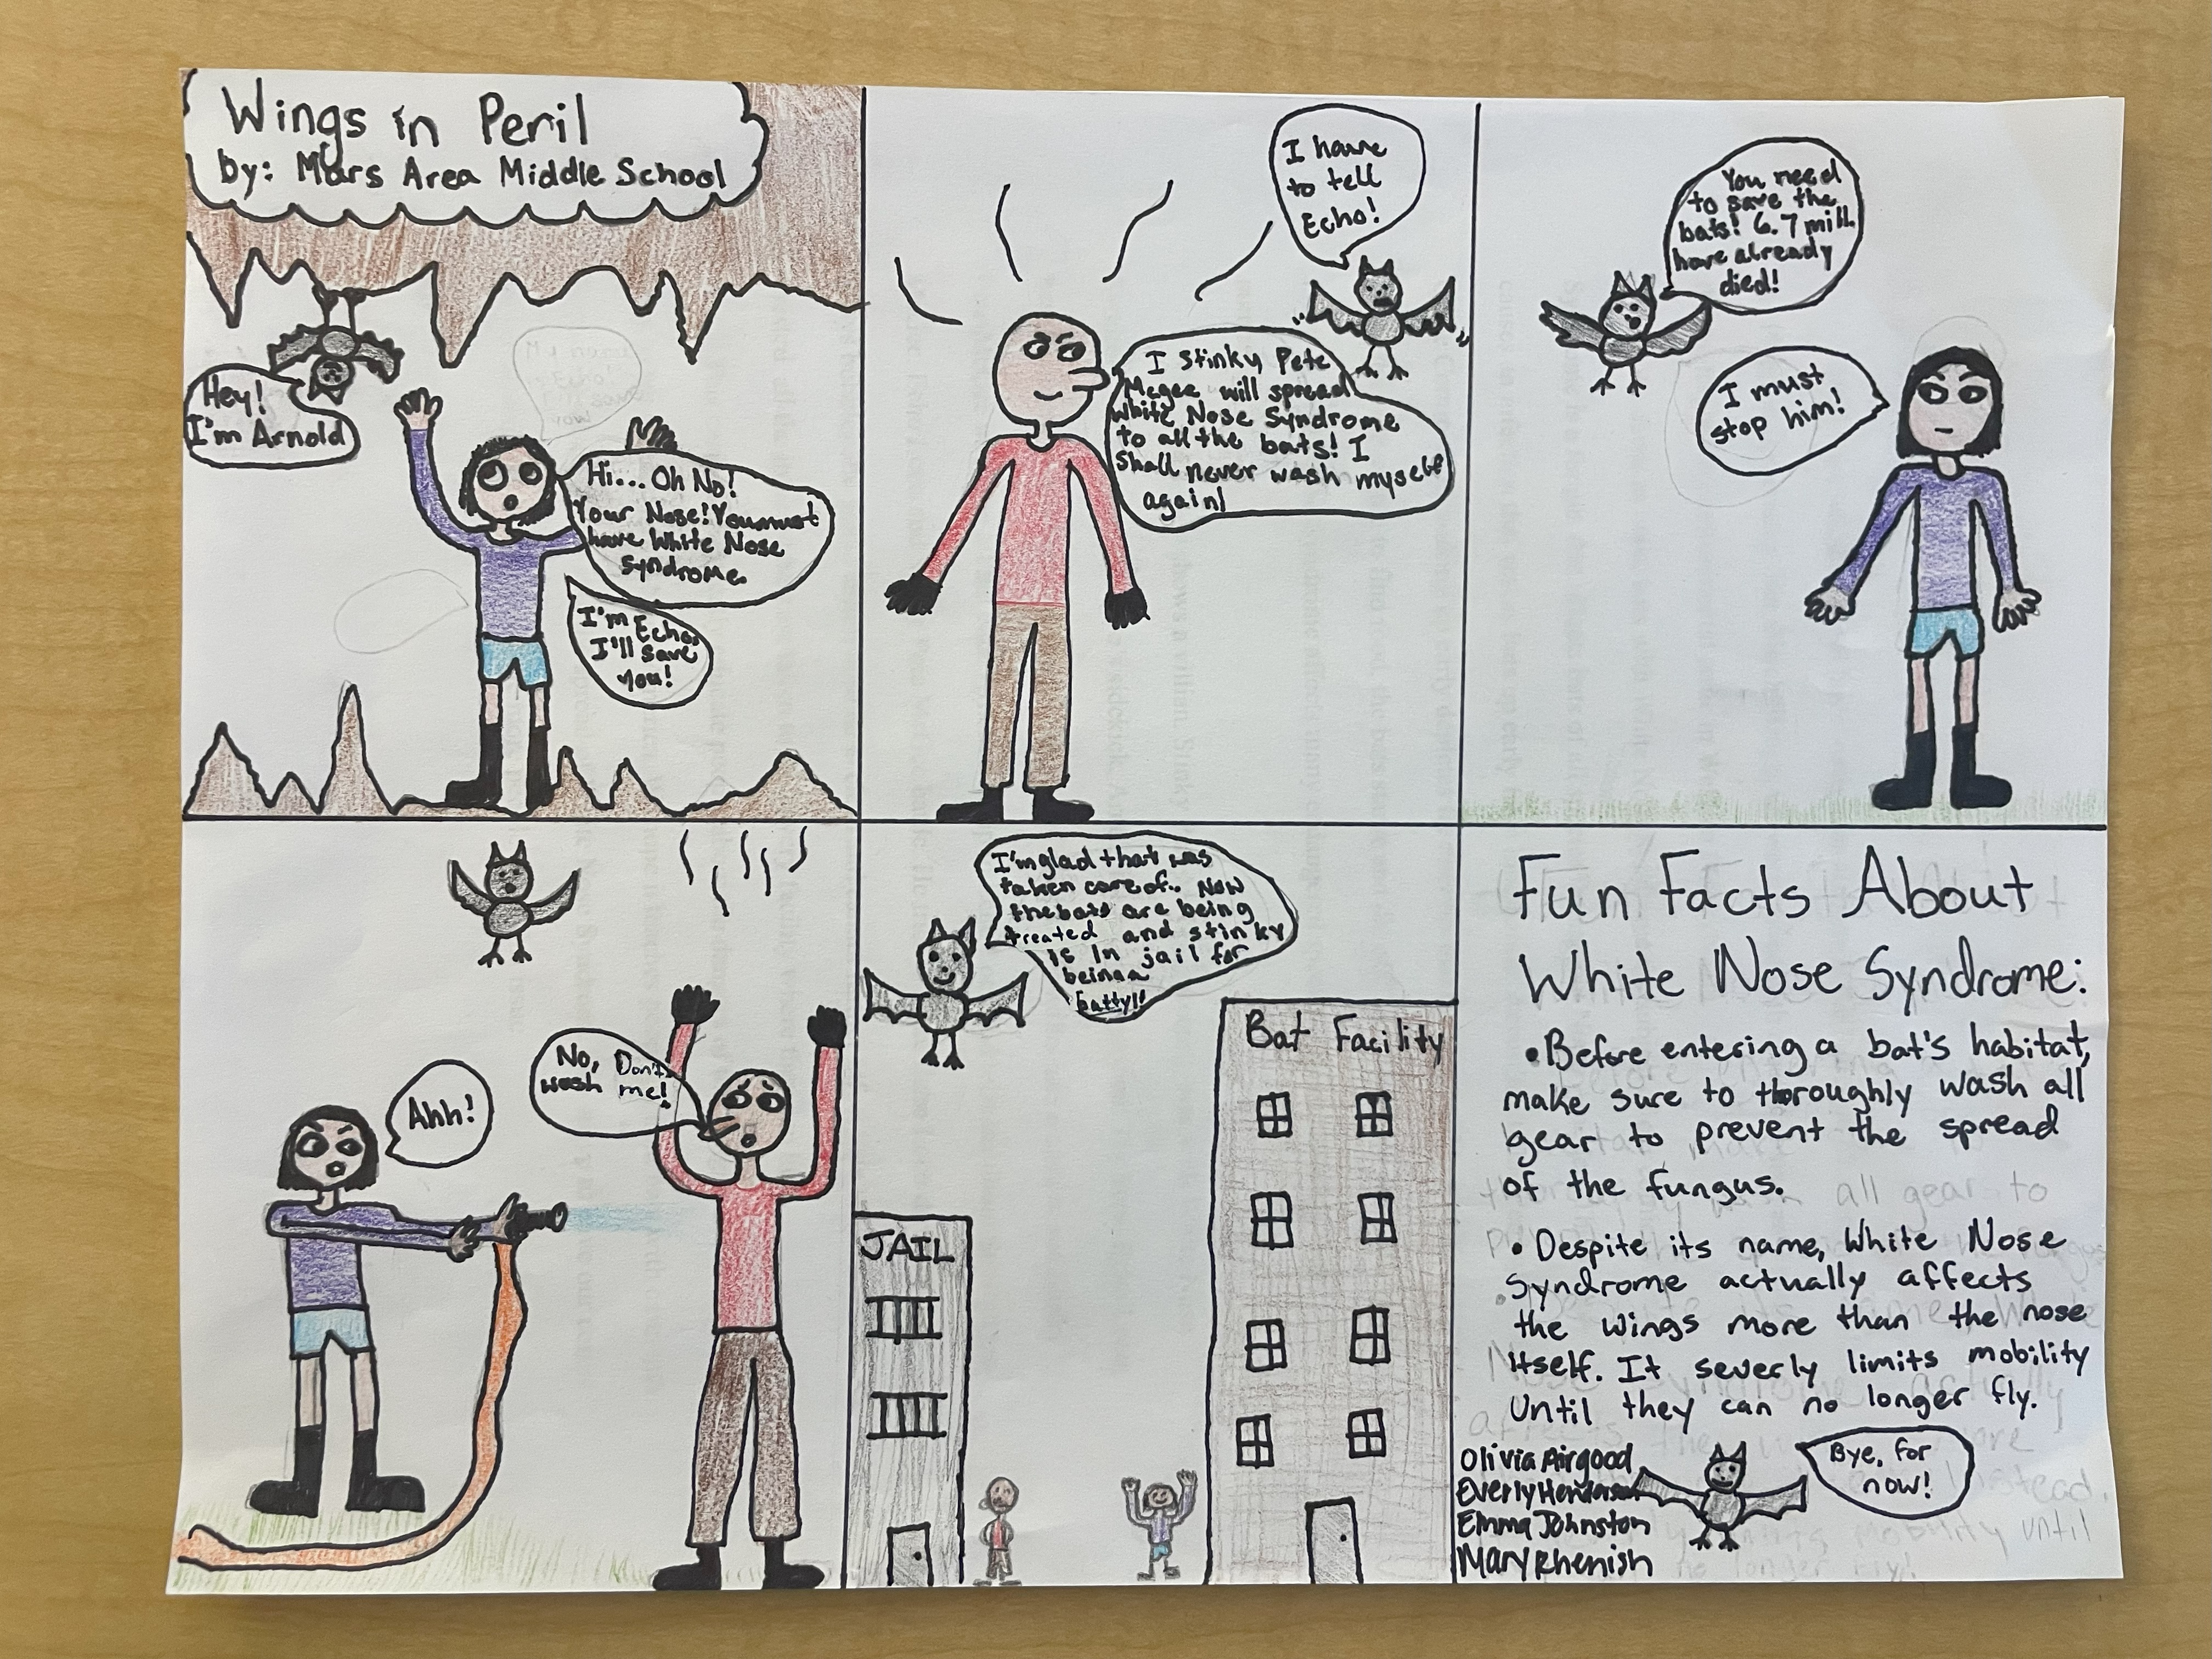 Wings in Peril
by: Mars Area Middle School
Hey!
I'm Arnold
Hi... Oh No!
Your Nose! You must
have White Nose
Syndrome.
I'm Echo,
I'll save
you!
I have
to tell
Echo!
I stinky Pete
Megee will spread
White Nose Syndrome
to all the bats! I
Shall never wash myself
again!
You need
to save the
bats! 6.7 mill.
have already
died!
I must
stop him!
Ahh!
No, Don't
wash me!
I'm glad that was
taken care of. Now
the bats are being
treated and stinky
is In jail for
being a
batty!!
JAIL
Bat Facility
Fun Facts About
White Nose Syndrome:
• Before entering a bat's habitat,
make sure to thoroughly wash all
gear to prevent the spread
of the fungus.
• Despite its name, White Nose
Syndrome actually affects
the wings more than the nose
itself. It severly limits mobility
until they can no longer fly.
Olivia Airgood
Everly
Emma Johnston
Mary Rhenish
Bye, for
now!